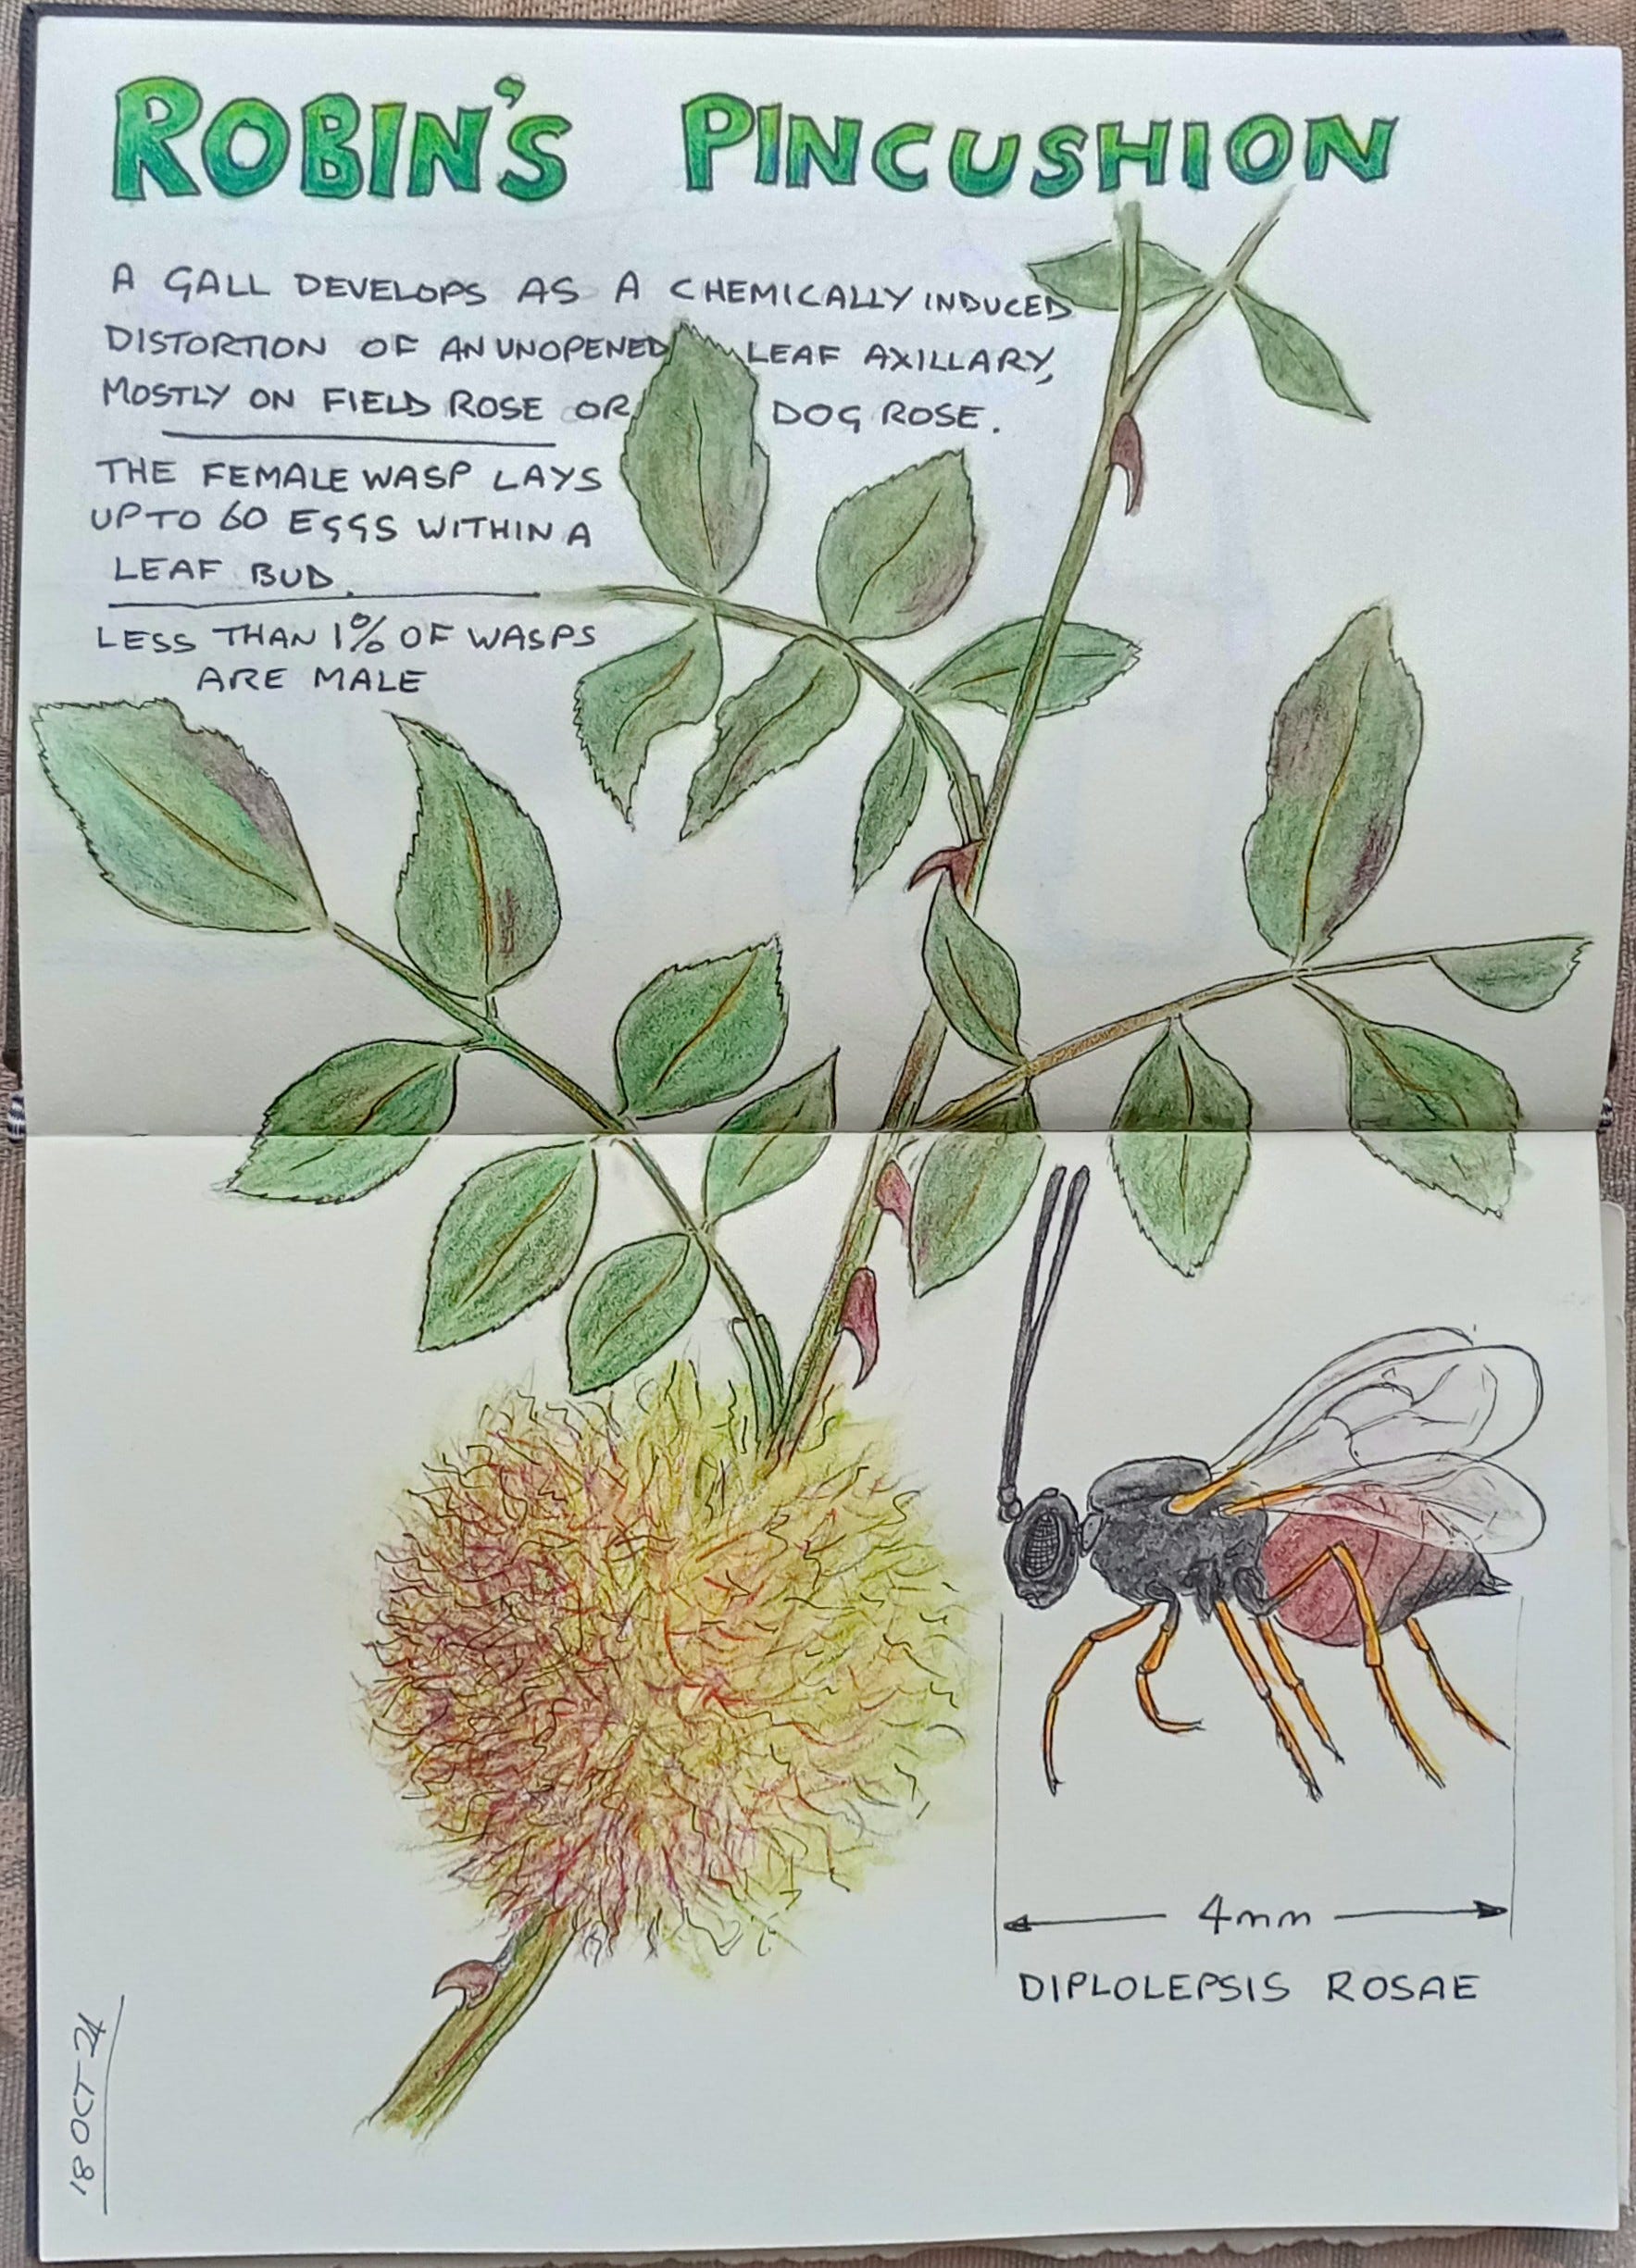 ROBIN'S PINCUSHION
A GALL DEVELOPS AS A CHEMICALLY INDUCED
DISTORTION OF AN UNOPENED LEAF AXILLARY,
MOSTLY ON FIELD ROSE OR DOG ROSE.
THE FEMALE WASP LAYS
UP TO 60 EGGS WITHIN A
LEAF BUD.
LESS THAN 1% OF WASPS
ARE MALE
4mm
DIPLOLEPSIS ROSAE
18 OCT 24